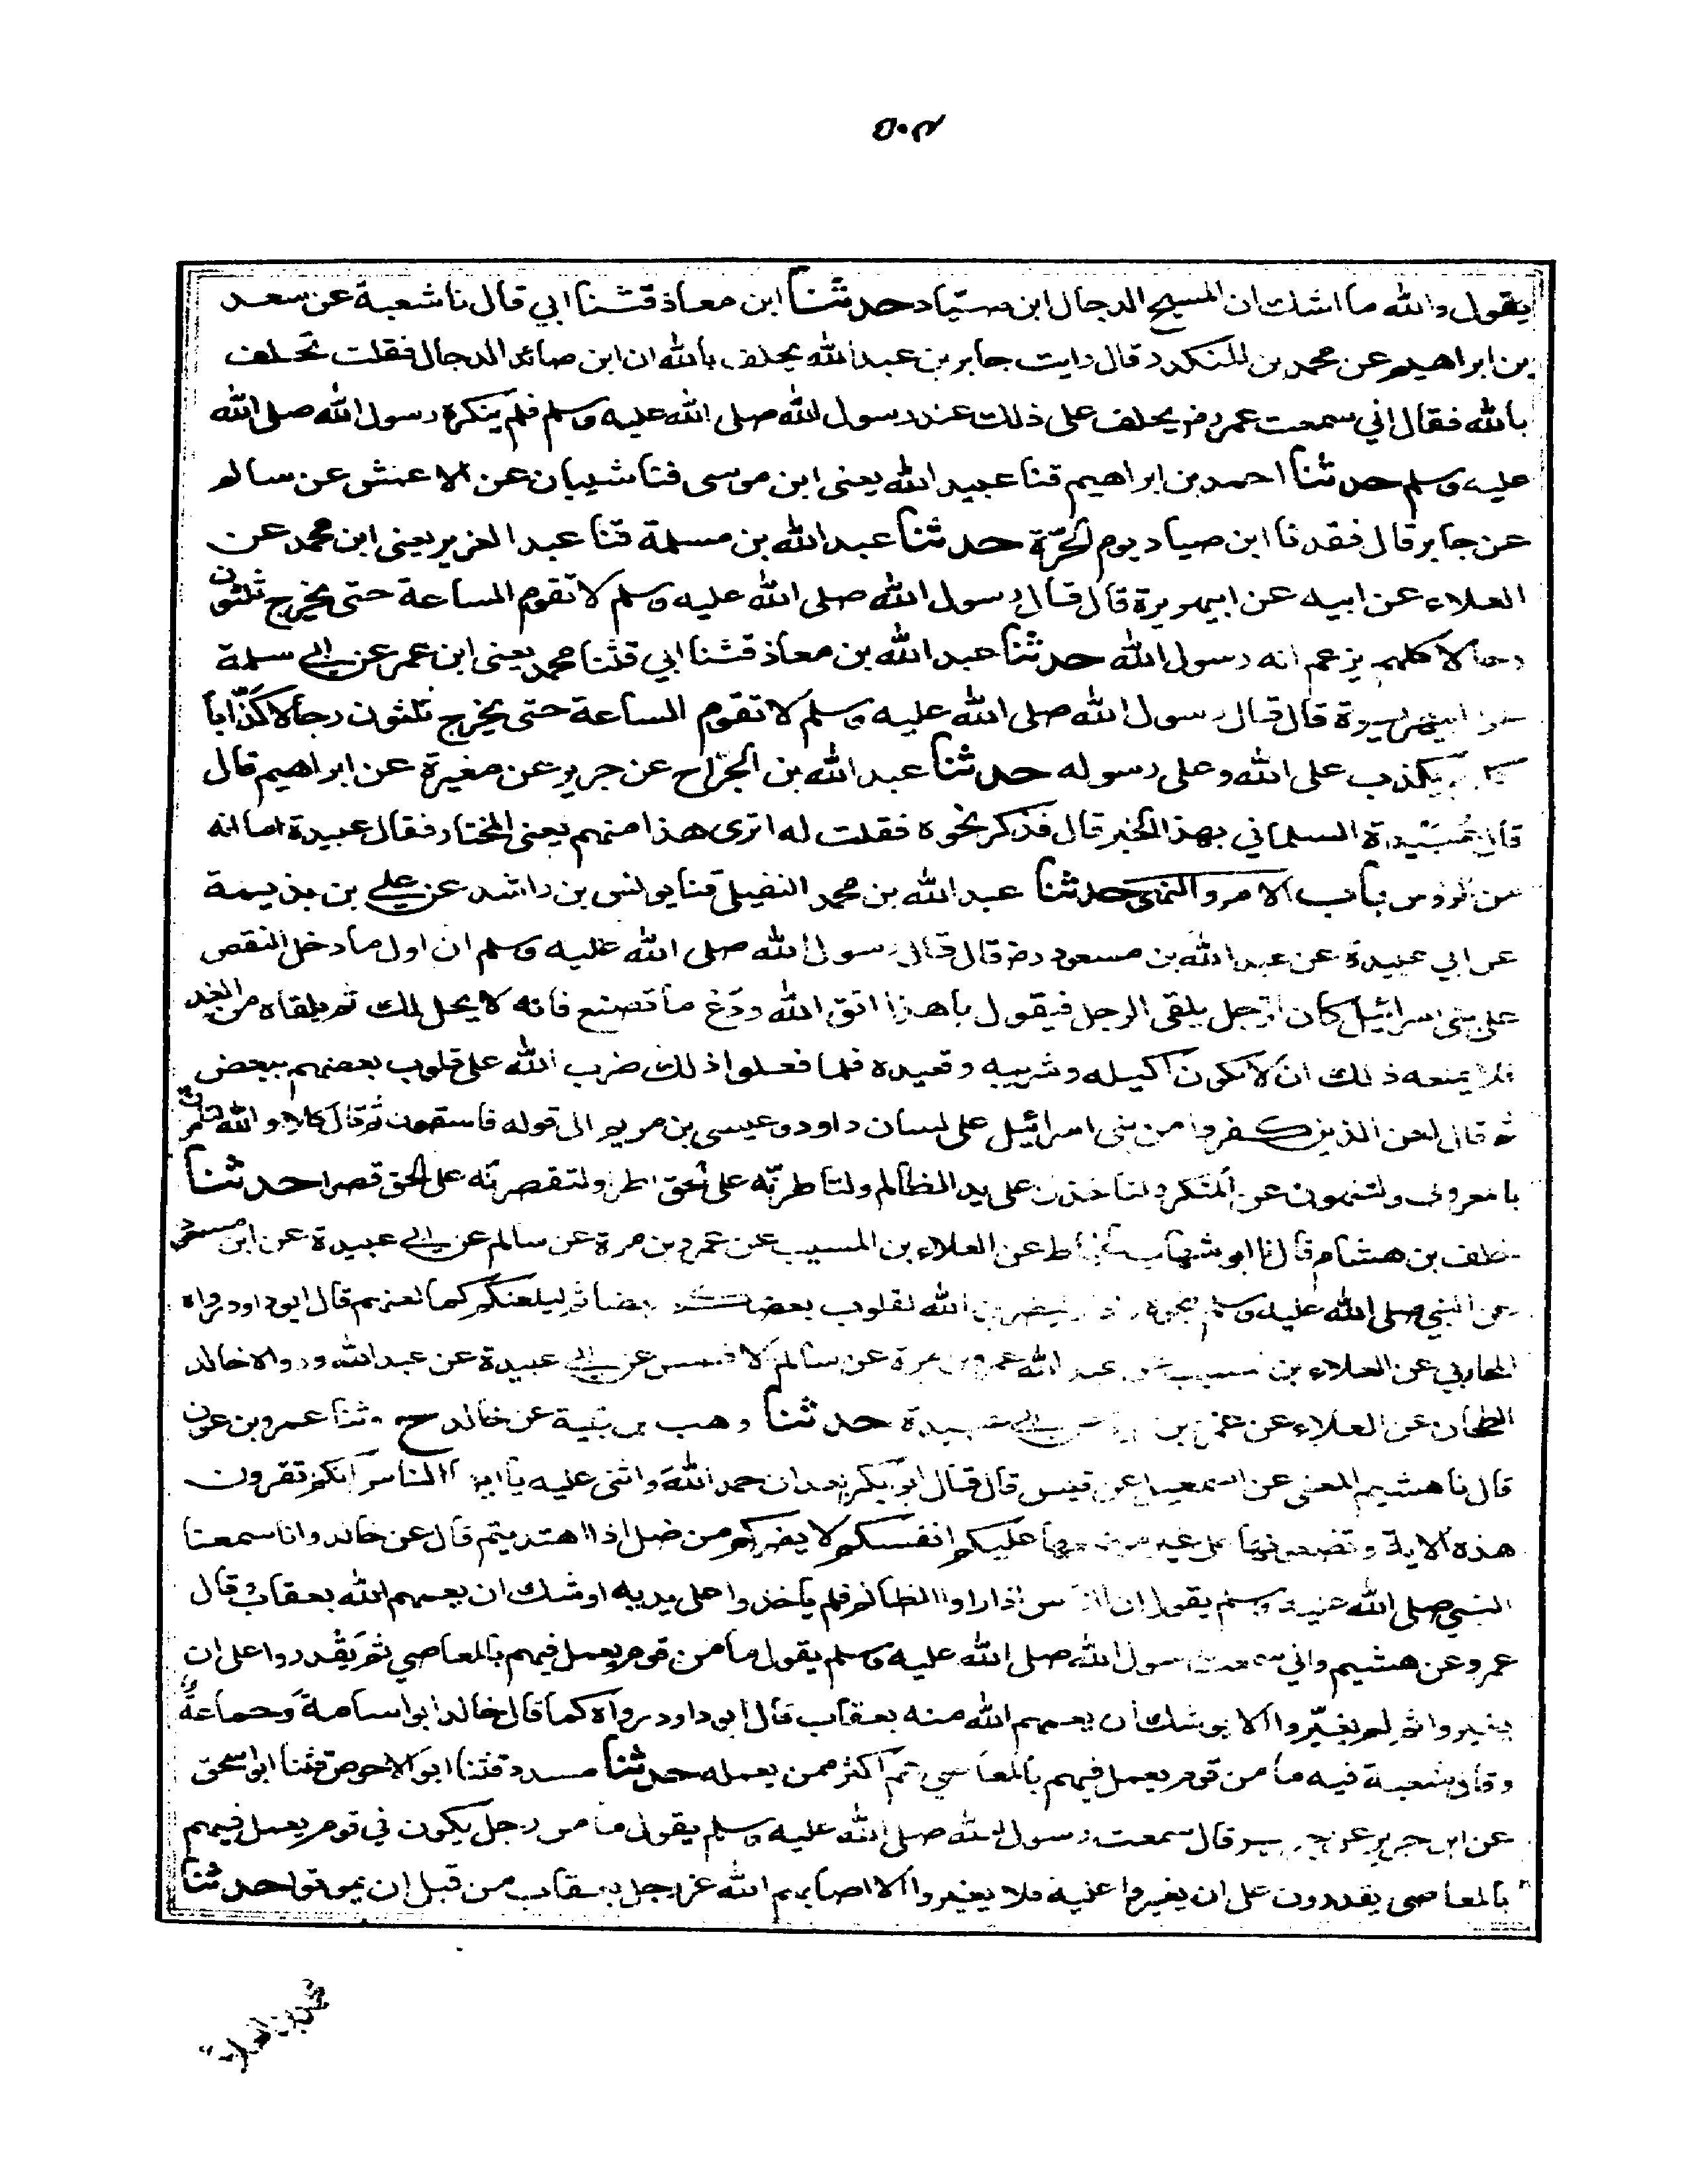 ٥٠٣
يقول والله ما اشك ان المسيح الدجال ابن صيّاد حدثنا ابن معاذ قثنا ابي قال نا شعبة عن سعد
بن ابراهيم عن محمد بن المنكدر قال رايت جابر بن عبد الله يحلف بالله ان ابن صائد الدجال فقلت تحلف
بالله فقال اني سمعت عمر رض يحلف على ذلك عند رسول الله صلى الله عليه وسلم فلم ينكرة رسول الله صلى الله
عليه وسلم حدثنا احمد بن ابراهيم قنا عبيد الله يعنى ابن موسى قنا شيبان عن الاعمش عن سالم
عن جابر قال فقدنا ابن صياد يوم الحرّة حدثنا عبد الله بن مسلمة قنا عبد العزيز يعنى ابن محمد عن
العلاء عن ابيه عن ابيهريرة قال قال رسول الله صلى الله عليه وسلم لا تقوم الساعة حتى يخرج ثلثون
دجالا كلهم يزعم انه رسول الله حدثنا عبد الله بن معاذ قثنا ابي قثنا محمد يعنى ابن عمر عن ابي سلمة
عن ابيهريرة قال قال رسول الله صلى الله عليه وسلم لا تقوم الساعة حتى يخرج ثلثون دجالا كذّابا
يكذب على الله وعلى رسوله حدثنا عبد الله بن الجرّاح عن جرير عن مغيرة عن ابراهيم قال
قال عُبَيْدة السلماني بهذا الخبر قال فذكر نحوه فقلت له اترى هذا منهم يعنى المختار فقال عبيدة اما انه
من الرؤس باب الامر والنهى حدثنا عبد الله بن محمد النفيلى قنا يونس بن راشد عن علي بن بذيمة
عن ابي عبيدة عن عبد الله بن مسعود رض قال قال رسول الله صلى الله عليه وسلم ان اول ما دخل النقص
على بنى اسرائيل كان الرجل يلقى الرجل فيقول يا هذا اتق الله ودَعْ ما تصنع فانه لا يحل لك ثم يلقاه من الغد
فلا يمنعه ذلك ان لا يكون اكيله وشريبه وقعيده فلما فعلوا ذلك ضرب الله على قلوب بعضهم ببعض
ثم قال لعن الذين كفروا من بنى اسرائيل على لسان داود وعيسى بن مريم الى قوله فاسقون ثم قال كلا والله لتأمرن
بالمعروف ولتنهون عن المنكر ولتاخذن على يد الظالم ولتاطرنّه على الحق اطرا ولتقصرنّه على الحق قصرا حدثنا
خلف بن هشام قال نا ابو شهاب الحناط عن العلاء بن المسيب عن عمرو بن مرة عن سالم عن ابي عبيدة عن ابن مسعود
عن النبي صلى الله عليه وسلم بنحوه زاد او ليضربن الله بقلوب بعضكم بعضا ثم ليلعنكم كما لعنهم قال ابو داود رواه
المحاربي عن العلاء بن المسيب عن عبد الله عمرو بن مرة عن سالم الافطس عن ابي عبيدة عن عبد الله ورواه خالد
الطحان عن العلاء عن عمرو بن مرة عن ابي عبيدة حدثنا وهب بن بقية عن خالد ح وثنا عمرو بن عون
قال نا هشيم المعنى عن اسمعيل عن قيس قال قال ابو بكر بعد ان حمد الله واثنى عليه يا ايها الناس انكم تقرون
هذه الاية وتضعونها على غير موضعها عليكم انفسكم لا يضركم من ضل اذا اهتديتم قال عن خالد وانا سمعنا
النبي صلى الله عليه وسلم يقول ان الناس اذا راوا الظالم فلم ياخذوا على يديه اوشك ان يعمهم الله بعقاب وقال
عمرو عن هشيم واني سمعت رسول الله صلى الله عليه وسلم يقول ما من قوم يعمل فيهم بالمعاصي ثم يَقْدروا على ان
يغيروا ثم لم يغيّروا الا يوشك ان يعمهم الله منه بعقاب قال ابو داود رواه كما قال خالد ابو اسامة وَجماعةٌ
وقال شعبة فيه ما من قوم يعمل فيهم بالمعاصي هم اكثر ممن يعمله حدثنا مسدد قثنا ابو الاحوص قثنا ابو اسحق
عن ابن جرير عن جرير قال سمعت رسول الله صلى الله عليه وسلم يقول ما من رجل يكون في قوم يعمل فيهم
بالمعاصى يقدرون على ان يغيروا عليه فلا يغيروا الا اصابهم الله عز وجل بعقاب من قبل ان يموتوا حدثنا
محمد بن العلاء